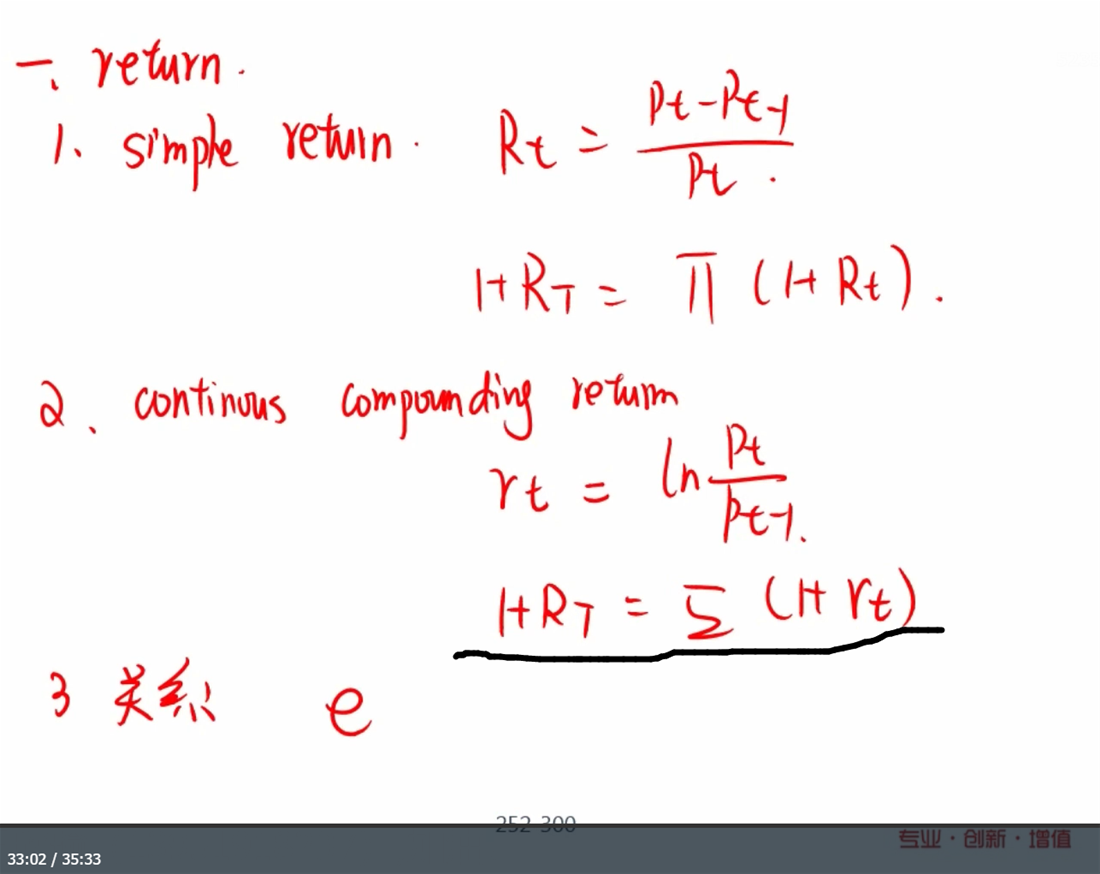 一、return.
1、simple return. Rt = (Pt-Pt-1)/Pt.
1+RT = π (1+Rt).
2、continous compounding return
rt = ln Pt/Pt-1.
1+RT = Σ (1+rt)
3 关系 e
252-300
专业·创新·增值
33:02 / 35:33